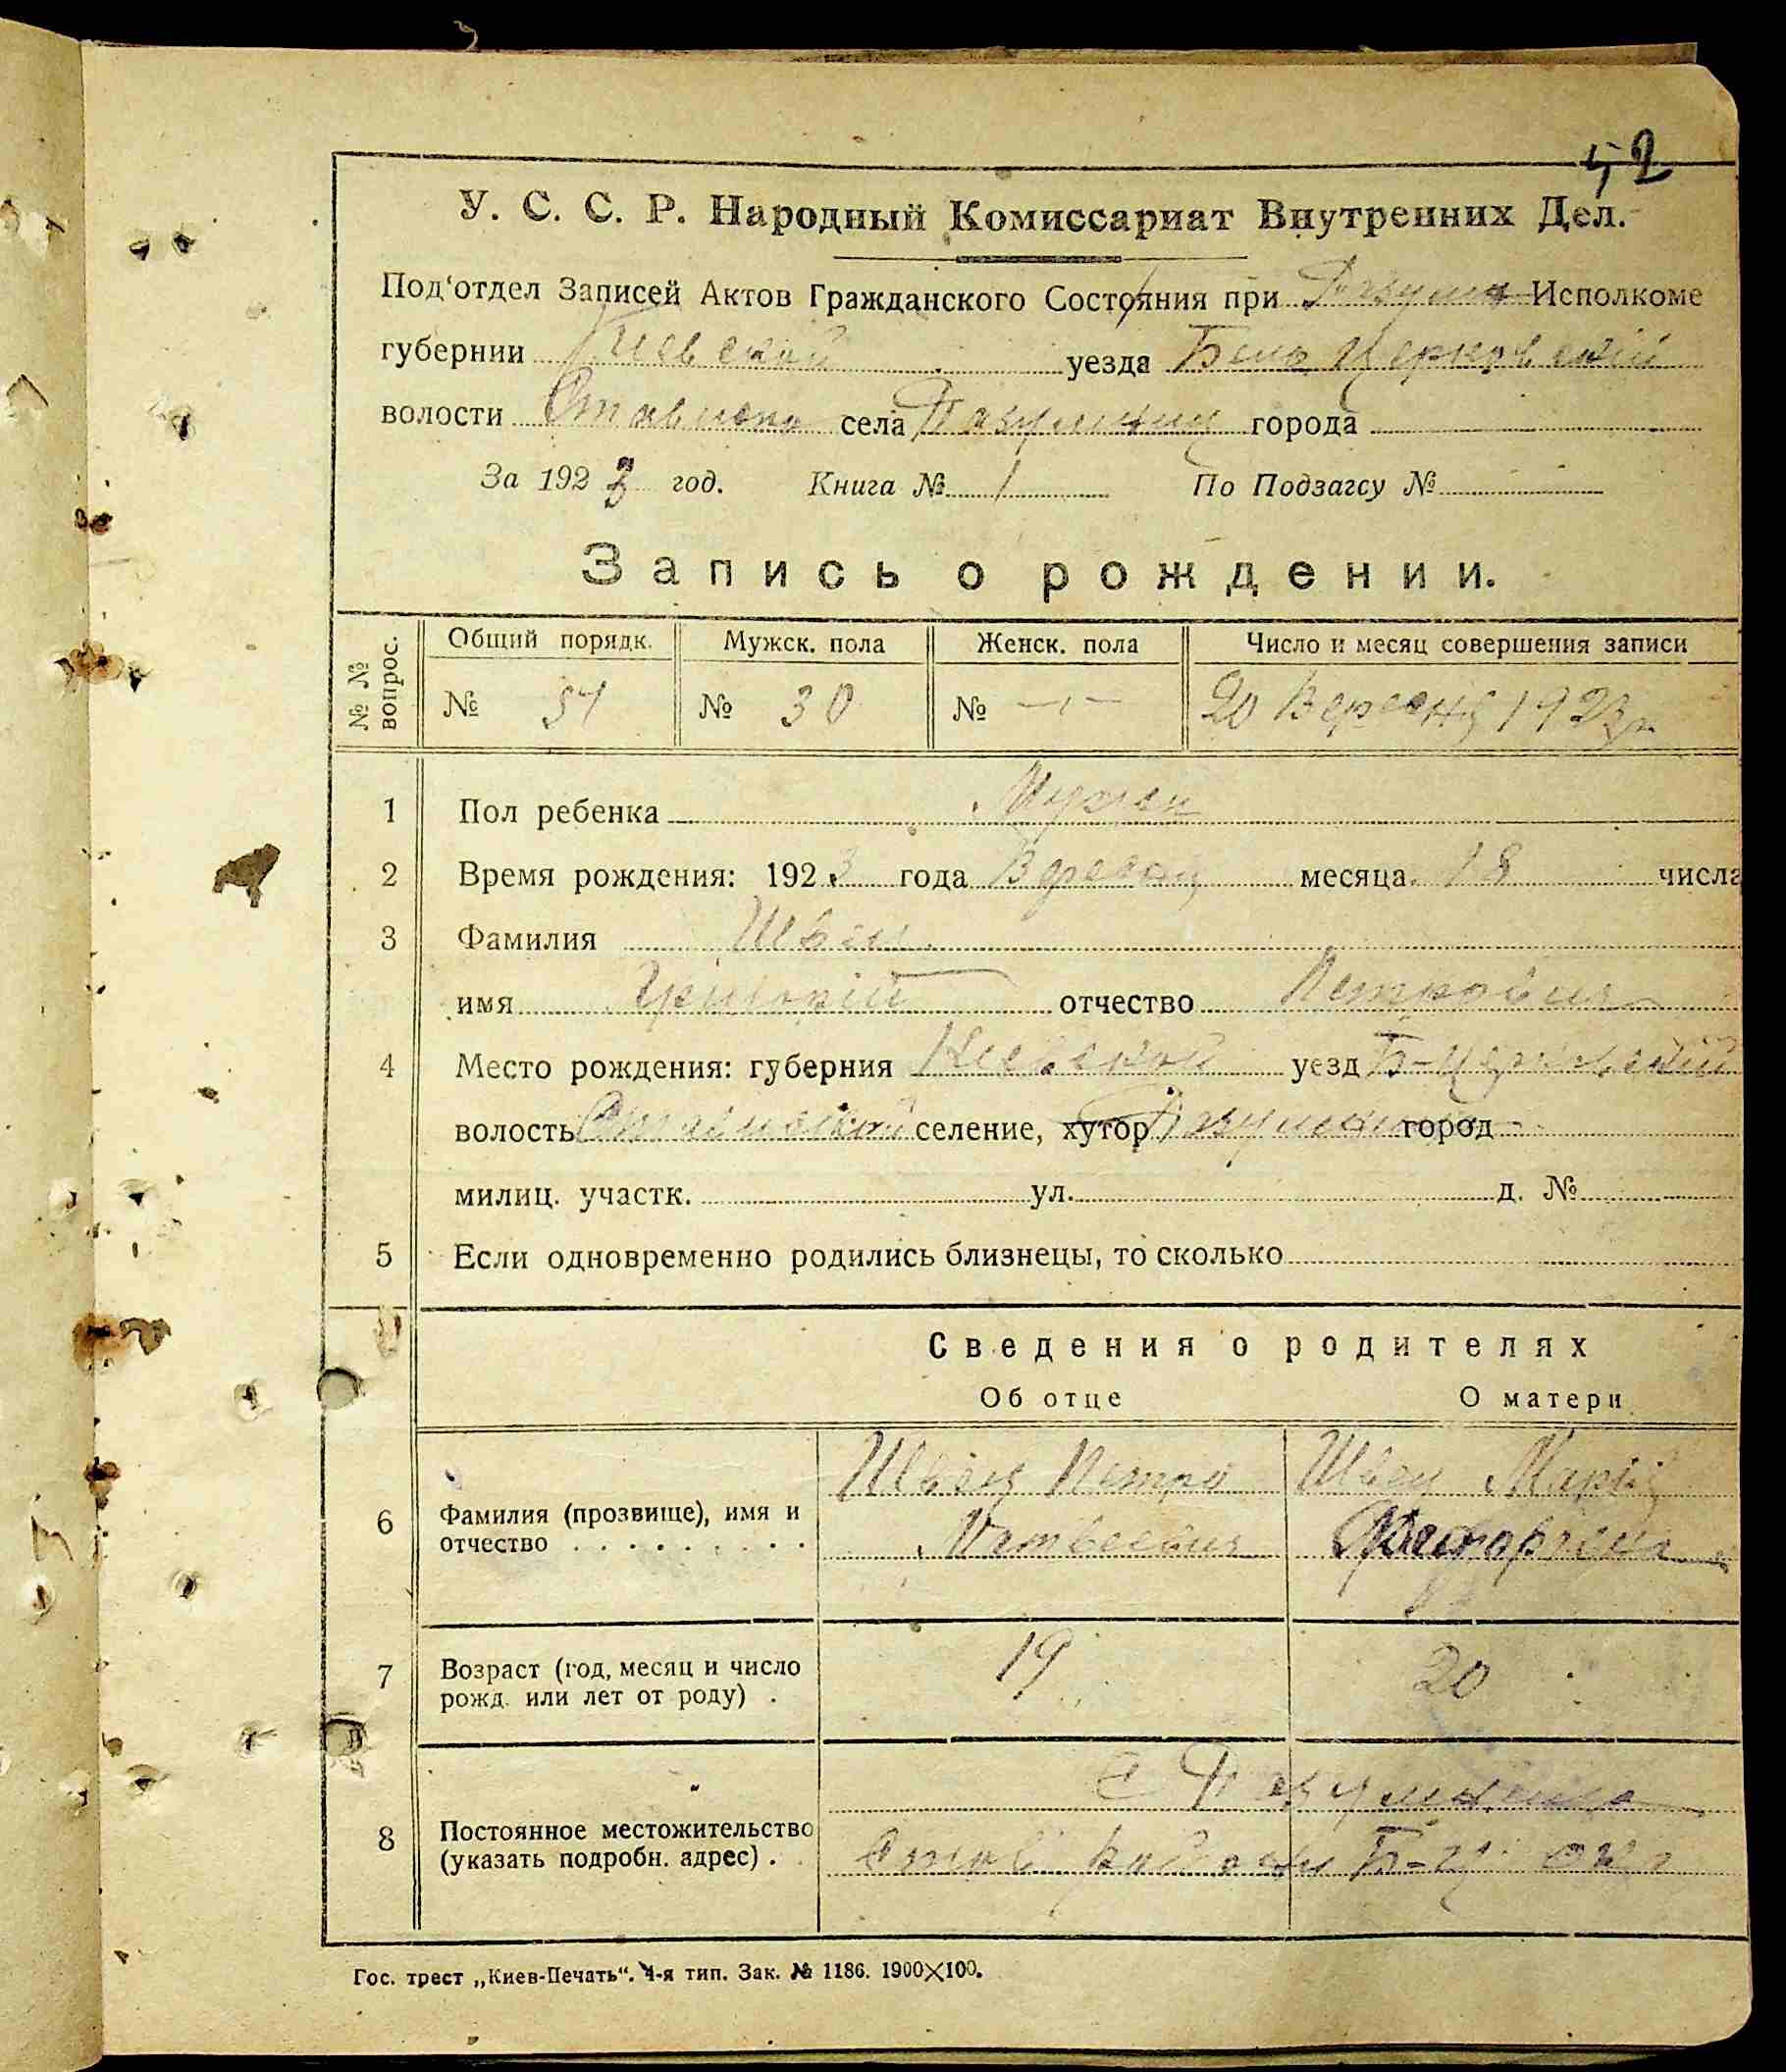 52
У. С. С. Р. Народный Комиссариат Внутренних Дел.
Под‘отдел Записей Актов Гражданского Состояния при Исполкоме
губернии Киевской уезда Бело Церковский
волости села города
За 1923 год. Книга № 1 По Подзагсу №
Запись о рождении.
№№ вопрос. Общий порядк. Мужск. пола Женск. пола Число и месяц совершения записи
№ 57 № 30 № — 20 Вересня 1923 р
1 Пол ребенка Мужеск
2 Время рождения: 1923 года Вересня месяца 18 числа
3 Фамилия Швец
имя Григорій отчество Петрович
4 Место рождения: губерния Киевской уезд Б-Церковский
волость селение, хутор город
милиц. участк. ул. д. №
5 Если одновременно родились близнецы, то сколько
Сведения о родителях
Об отце О матери
6 Фамилия (прозвище), имя и отчество Швец Петро Матвеевич Швец Марія
7 Возраст (год, месяц и число рожд. или лет от роду) 19 20
8 Постоянное местожительство (указать подробн. адрес) с
Гос. трест „Киев-Печать“. 4-я тип. Зак. № 1186. 1900×100.